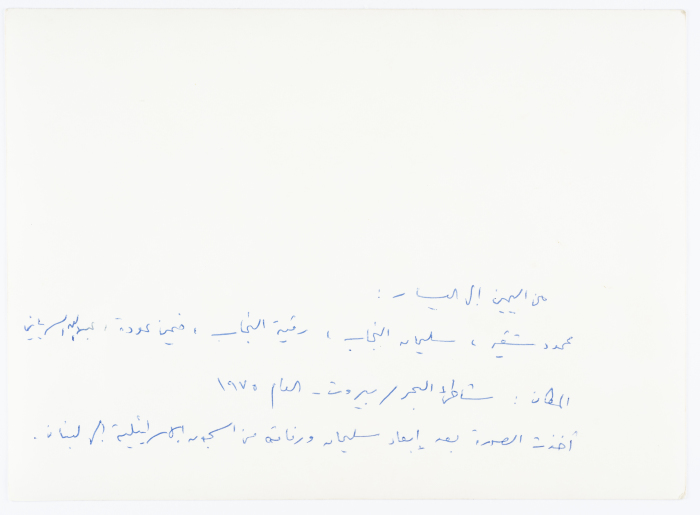 من اليمين إلى اليسار :
محمود شقير ، سليمان النجاب ، رقية النجاب ، خميس عودة ، عبدالله السرياني
المكان : شاطئ البحر / بيروت - العام ١٩٧٥
أخذت الصورة بعد إبعاد سليمان ورفاقه من السجون الاسرائيلية إلى لبنان .